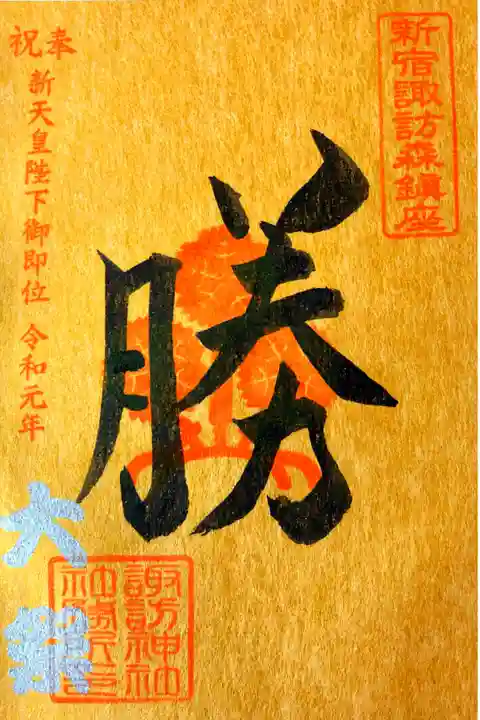 新宿諏訪森鎮座
勝
奉祝
新天皇陛下御即位 令和元年
諏訪神社